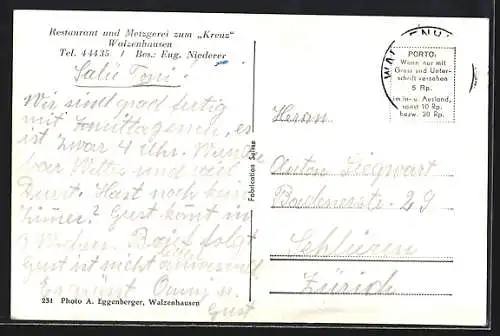 Restaurant und Metzgerei zum „Kreuz"
Walzenhausen
Tel. 44435 / Bes.: Eug. Niederer
Salü Toni!
Wir sind grad fertig
mit Zmittagessen, es
ist zwar 4 Uhr.
bar Wetter und viel
Durst. Hast noch kein
Gust könt in
3 Wochen. Brief folgt
Gust ist nicht anwesend
Gust
231 Photo A. Eggenberger, Walzenhausen
Fabrication Suisse
PORTO:
Wenn nur mit
Gruss und Unter-
schrift versehen
5 Rp.
im In- u. Ausland,
sonst 10 Rp.
bezw. 20 Rp.
Herrn
Anton Siegwart
Badenerstr. 29
Schlieren
Zürich